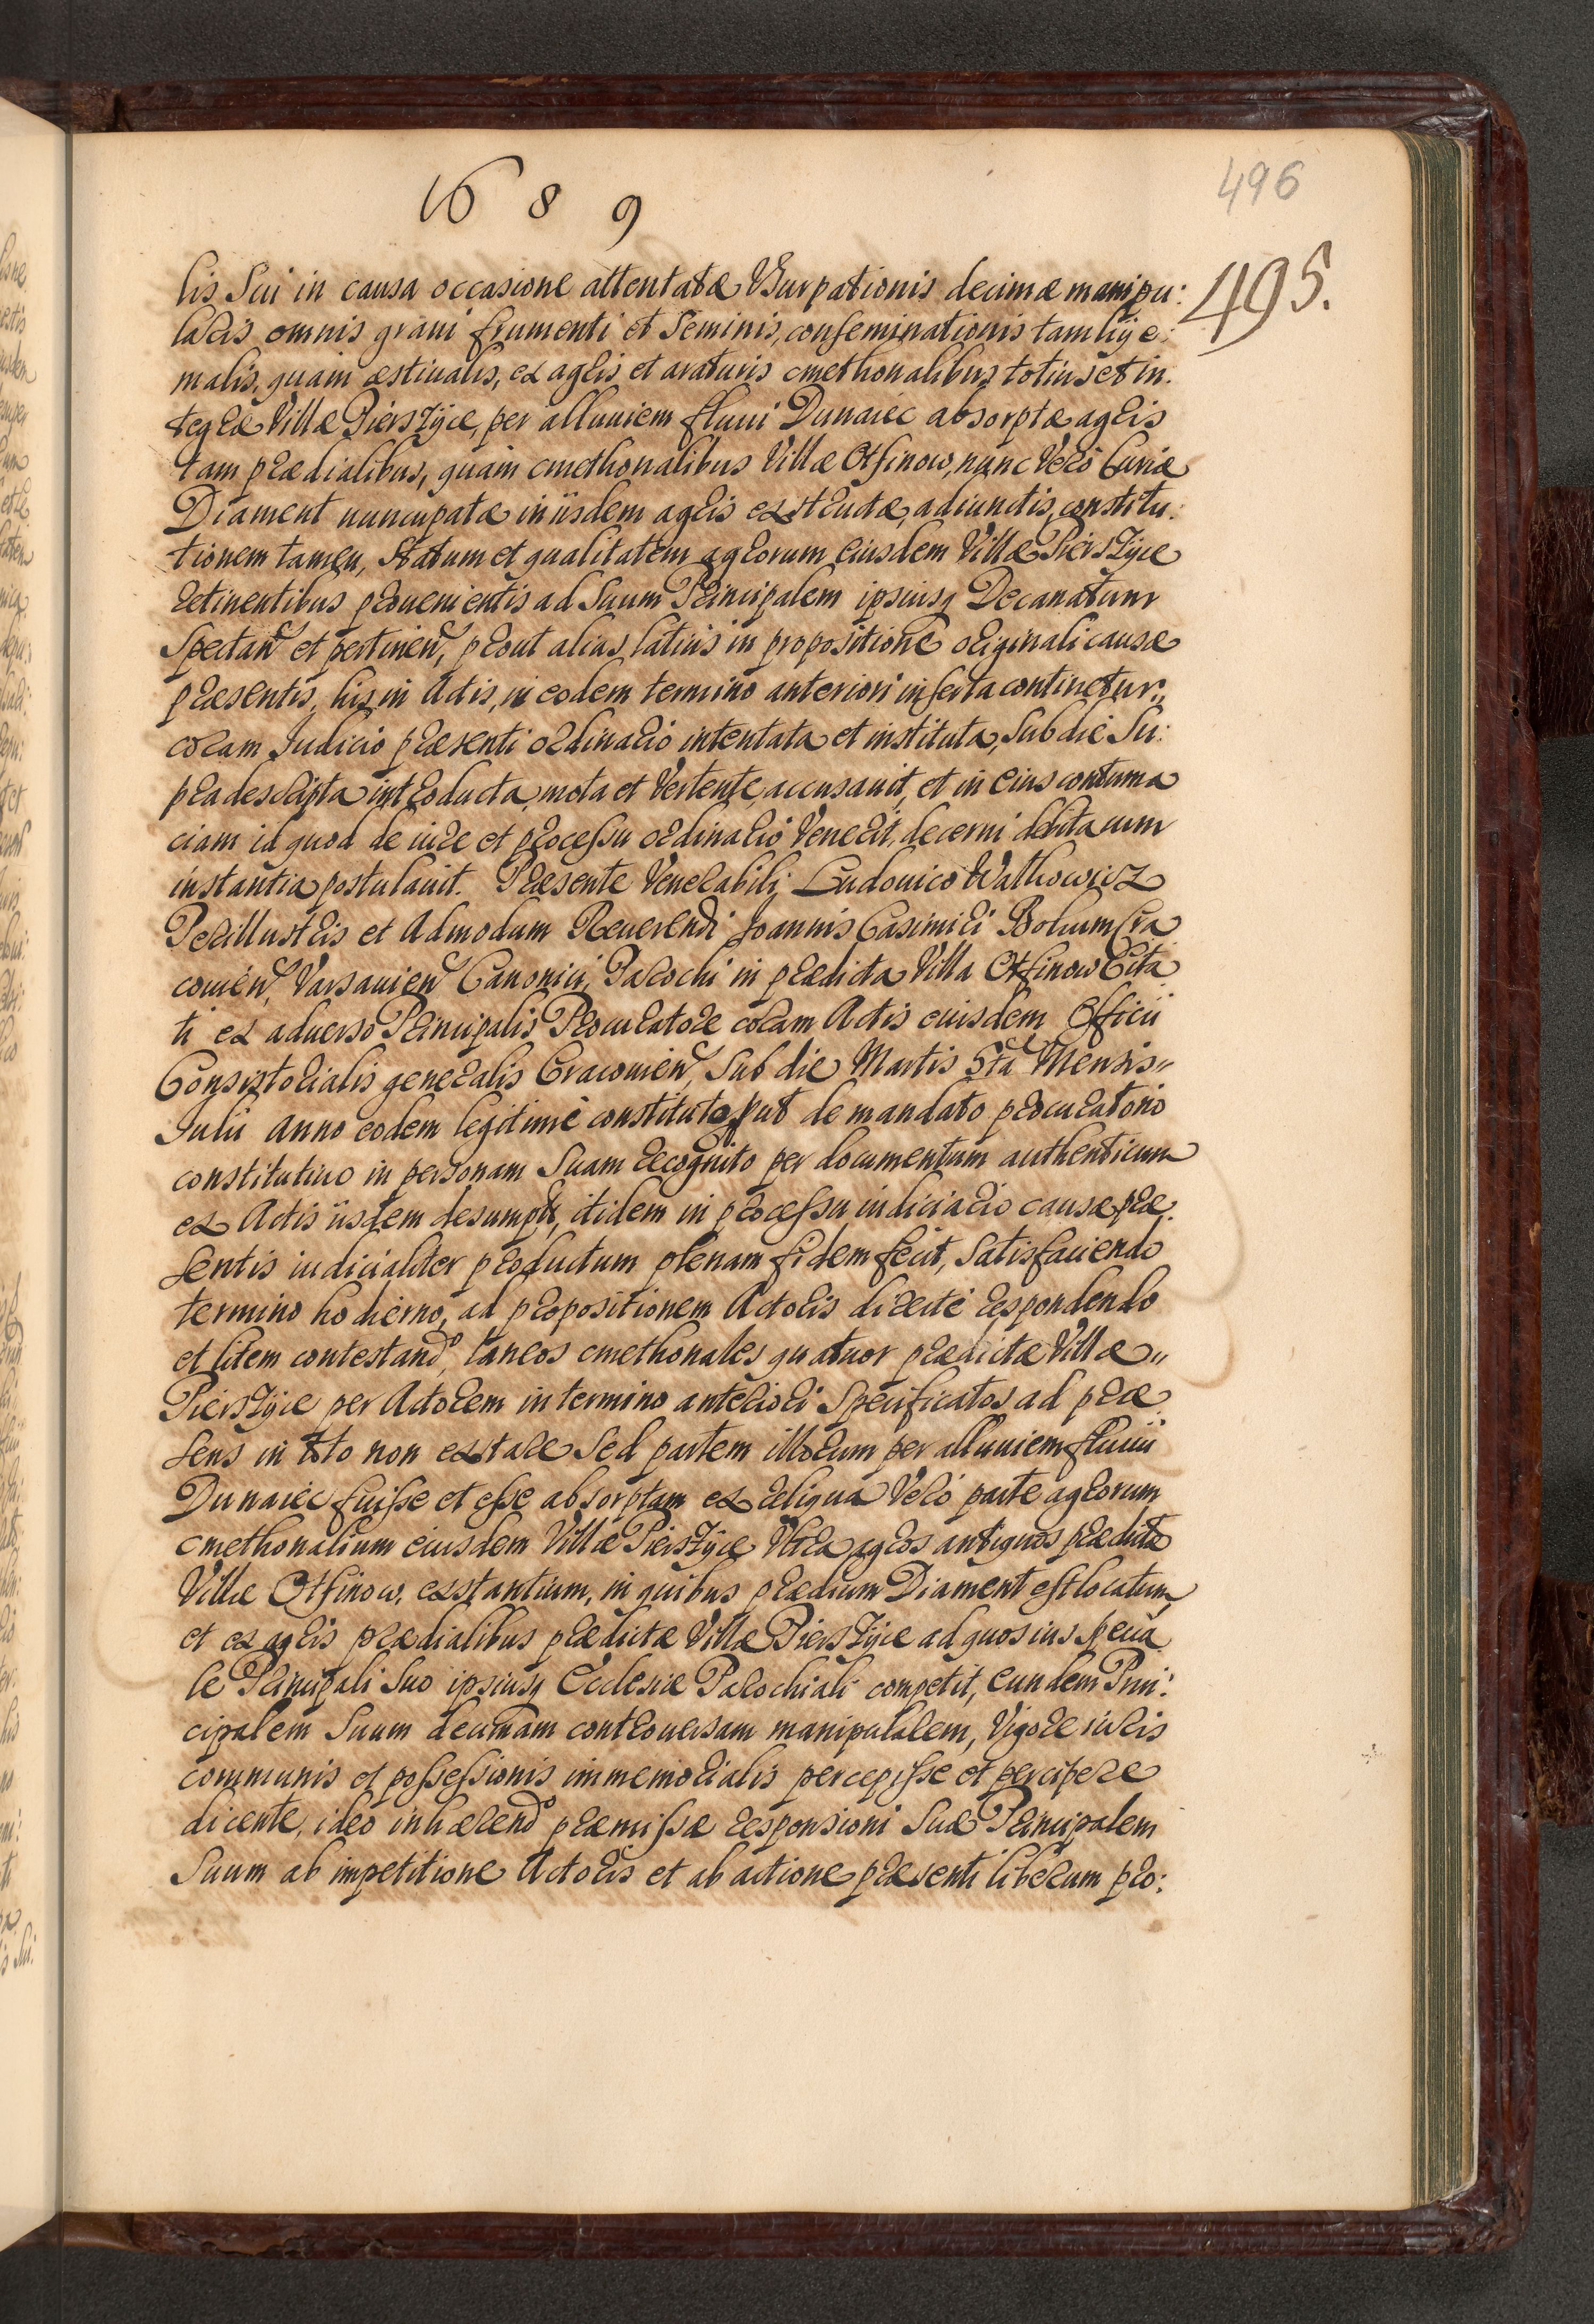 1689
496
495.
lis Sui in causa occasione attentatæ Vsurpationis decimæ manipu:
laris omnis grani frumenti et Seminis, conseminationis tam hye:
malis, quam æstiualis, ex agris et araturis cmethonalibus totius et in:
tegræ Villæ Pierszyce, per alluuiem fluui Dunaiec absorptæ agris
tam prædialibus, quam cmethonalibus Villæ Otfinow, nunc Verò Curiæ
Diament nuncupatæ in iisdem agris exstructæ, adiunctis, constitu:
tionem tamen, Statum et qualitatem agrorum eiusdem Villæ Pierszyce
retinentibus prouenientis ad Suum Principalem ipsiusq Decanatum
Spectan et pertinen, prout alias latius in propositione originali causæ
præsentis, his in Actis, in eodem termino anteriori inserta continetur,
coram Judicio præsenti ordinario intentata et instituta, Sub die Su:
pra descripta introducta, mota et Vertente, accusauit, et in eius contuma
ciam id quod de iure et processu ordinario Venerit, decerni debita cum
instantia postulauit. Præsente Venerabili Ludouico Wathowicz
Perillustris et Admodum Reuerendi Joannis Casimiri Bohum Cra
couien, Varsauien Canonici, Parochi in prædicta Villa Otfinow Cita
ti ex aduerso Principalis Procuratore coram Actis eiusdem Officii
Consistorialis generalis Cracouien, Sub die Martis 5ta Mensis
Julii Anno eodem legitime constituto, put de mandato procuratorio
constitutiuo in personam Suam recognito per documentum authenticum
ex Actis iisdem desumptu, itidem in processu iudiciario causæ præ:
sentis iudicialiter productum plenam fidem fecit, Satisfaciendo
termino hodierno, ad propositionem Actoris directè respondendo
et litem contestando, laneos cmethonales quatuor prædictæ Villæ
Pierszyce per Actorem in termino anteriori Specificatos ad præ
sens in toto non exstare Sed partem illorum per alluuiem fluuii
Dunaiec fuisse et esse absorptam ex reliqua Verò parte agrorum
cmethonalium eiusdem Villæ Pierszyce Vltra agros antiquos prædictæ
Villæ Otfinow, exstantium, in quibus prædium Diament est locatum,
et ex agris prædialibus prædictæ Villæ Pierszyce ad quos ius Specia
le Principali Suo ipsiusq Ecclesiæ Parochiali competit, eundem Prin:
cipalem Suum decimam controuersam manipularem, Vigore iuris
communis et possessionis immemorialis percepisse et percipere
dicente, ideo inhærendo præmissæ responsioni Suæ Principalem
Suum ab impetitione Actoris et ab actione præsenti liberum pro: